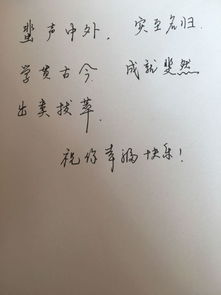 蜚声中外, 实至名归.
学贯古今 成就斐然
出类拔萃.
祝你幸福快乐!